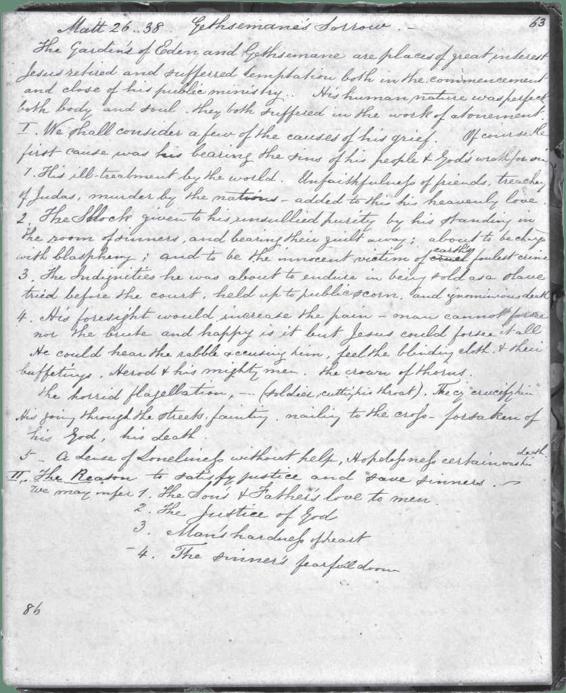 63
Matt 26..38 Gethsemane's Sorrow. —
The Gardens of Eden and Gethsemane are places of great interest
Jesus retired and sufferred temptation both in the commencement
and close of his public ministry.. His human nature was perfect
both body and soul. they both suffered in the work of atonement.
I. We shall consider a few of the causes of his grief. Of course the
first cause was his bearing the sins of his people & God's wrath for sin
1. His ill-treatment by the world. Unfaithfulness of friends, treachery
of Judas, murder by the nations - added to this his heavenly love
2. The Shock given to his unsullied purity, by his standing in
the room of sinners, and bearing their guilt away; about to be chgd
with blasphemy; and to be the innocent victim of earth's foulest crime
3. The Indignities he was about to endure in being sold as a slave
tried before the court, held up to public scorn, and ignominious death
4. His foresight would increase the pain - man cannot forsee
nor the brute and happy is it but Jesus could forsee it all
He could hear the rabble accusing him, feel the blinding cloth & their
buffetings, Herod & his mighty men. the crown of thorns.
the horrid flagellation, — (soldier cutting his throat). The crucifixion
His going through the streets, fainting. nailing to the cross - forsaken of
his God, his death
5 - A sense of Loneliness without help, Hopelessness certain death
II. The Reason to satisfy justice and save sinners. —
We may infer 1. The Son's & Father's love to men.
2. The Justice of God
3. Man's hardness of heart
- 4. The sinner's fearful doom
86